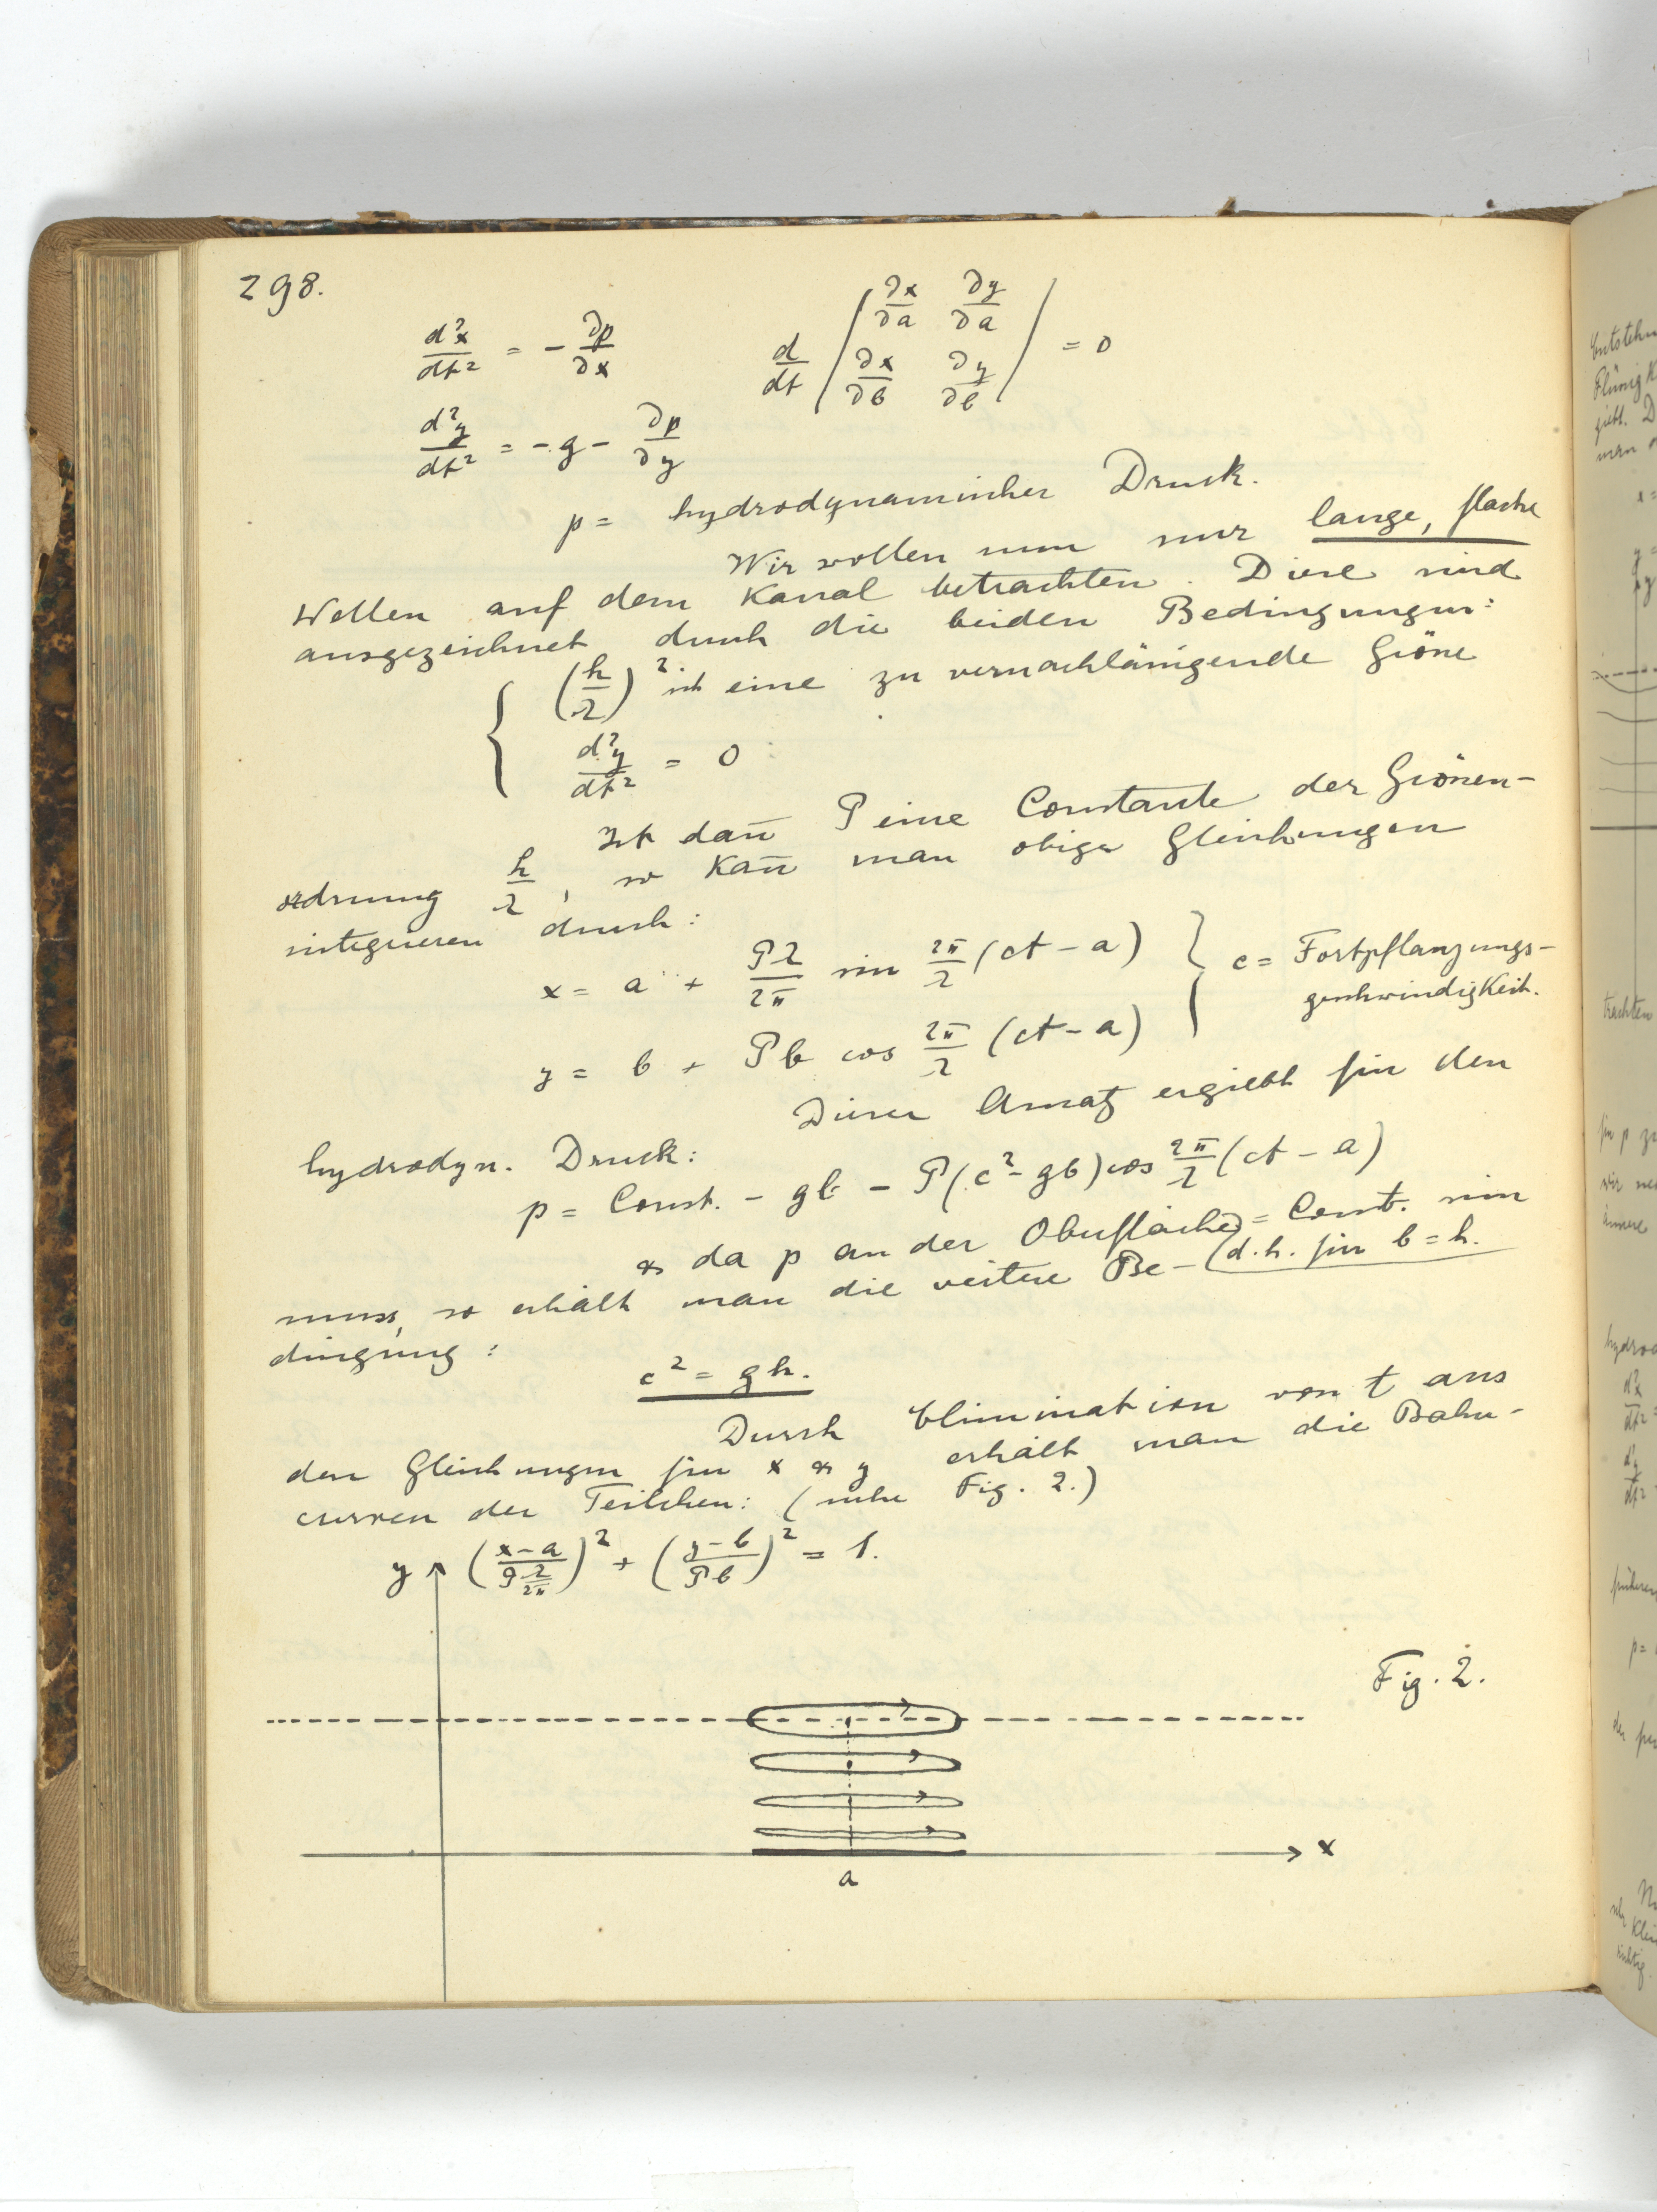 298.
d²x/dt² = − ∂p/∂x   d/dt | ∂x/∂a ∂y/∂a ; ∂x/∂b ∂y/∂b | = 0
d²y/dt² = − g − ∂p/∂y
p = hydrodynamischer Druck.
Wir wollen nun nur lange, flache
Wellen auf dem Kanal betrachten. Diese sind
ausgezeichnet durch die beiden Bedingungen:
{ (h/λ)² ist eine zu vernachlässigende Grösse
d²y/dt² = 0
Ist dan̄ P eine Constante der Grössen-
ordnung h/λ, so Kan̄ man obige Gleichungen
integrieren durch:
x = a + Pλ/2π sin 2π/λ (ct − a) } c = Fortpflanzungs-
geschwindigkeit.
y = b + Pb cos 2π/λ (ct − a)
Dieser Ansatz ergiebt für den
hydrodyn. Druck:
p = Const. − gb − P(c² − gb) cos 2π/λ (ct − a)
& da p an der Oberfläche = Const. sein
(d. h. für b = h.
muss, so erhält man die weitere Be-
dingung:
c² = gh.
Durch Elimination von t aus
den Gleichungen für x & y erhält man die Bahn-
curven der Teilchen: (siehe Fig. 2.)
y ((x−a)/(P λ/2π))² + ((y−b)/(Pb))² = 1.
Fig. 2.
x
a